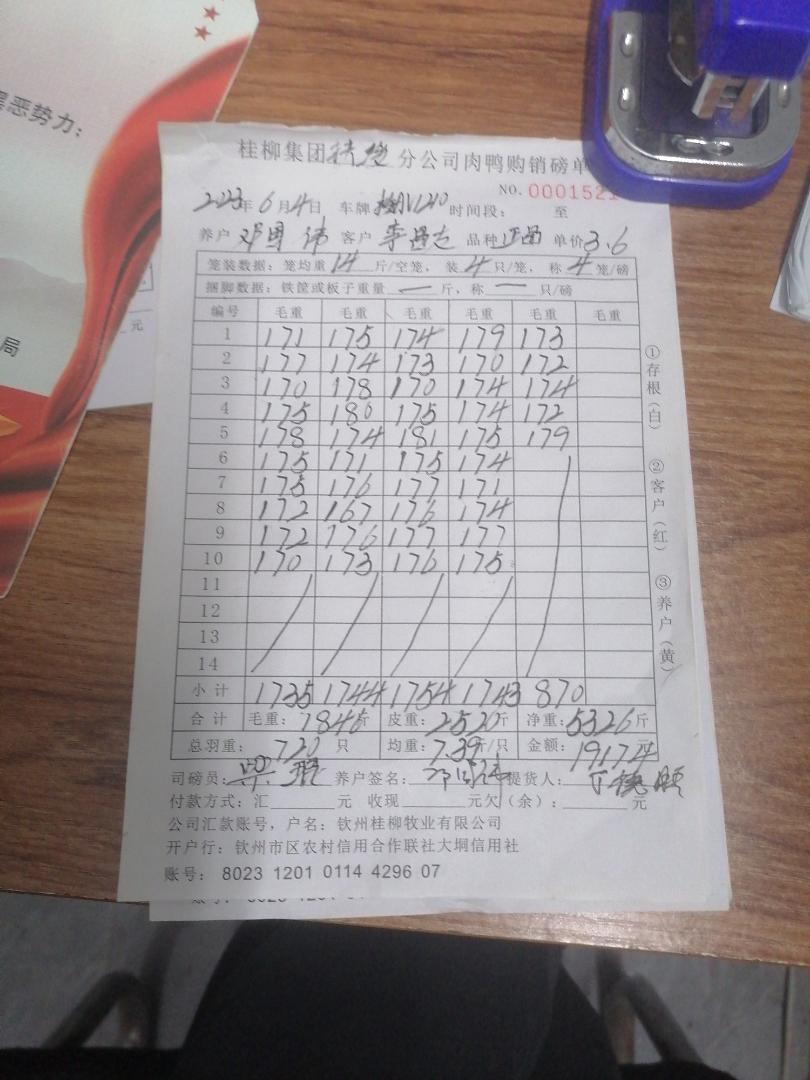 恶势力；
元
局
桂柳集团 分公司肉鸭购销磅单
NO. 0001521
2023年6月4日 车牌 时间段： 至
养户 邓国伟 客户 李 品种 单价3.6
笼装数据：笼均重14斤/空笼，装4只/笼，称4笼/磅
捆脚数据：铁筐或板子重量—斤，称—只/磅
编号 毛重 毛重 毛重 毛重 毛重 毛重
1 171 175 174 179 173
2 177 174 173 170 172
3 170 178 170 174 174
4 175 180 175 174 172
5 178 174 181 175 179
6 175 171 175 174
7 175 176 177 171
8 172 167 176 174
9 172 176 177 177
10 170 173 176 175
11
12
13
14
小计 1735 1744 1754 1743 870
合计 毛重：7846斤 皮重：2520斤 净重：5326斤
总羽重：720只 均重：7.39斤/只 金额：19174元
司磅员： 养户签名：邓国伟 提货人：
付款方式：汇 元 收现 元欠（余）： 元
公司汇款账号，户名：钦州桂柳牧业有限公司
开户行：钦州市区农村信用合作联社大垌信用社
账号： 8023 1201 0114 4296 07
①存根（白）
②客户（红）
③养户（黄）